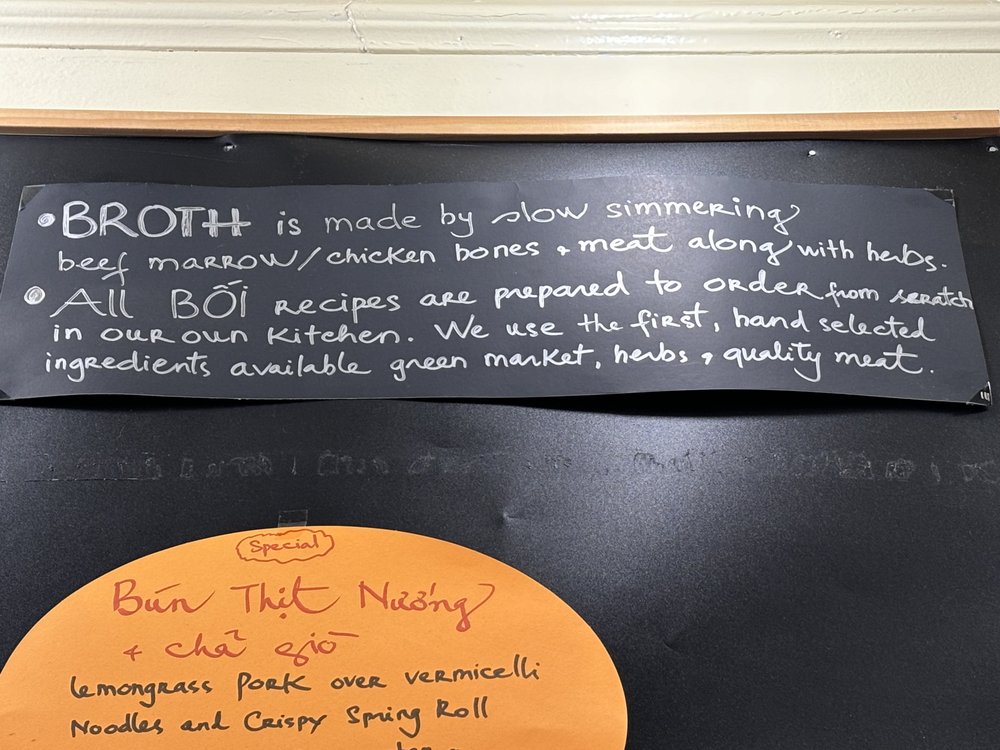 • BROTH is made by slow simmering
beef marrow/chicken bones + meat along with herbs.
• All BỐI recipes are prepared to order from scratch
in our own kitchen. We use the first, hand selected
ingredients available green market, herbs + quality meat.
Special
Bún Thịt Nướng
+ chả giò
Lemongrass Pork over vermicelli
Noodles and Crispy Spring Roll